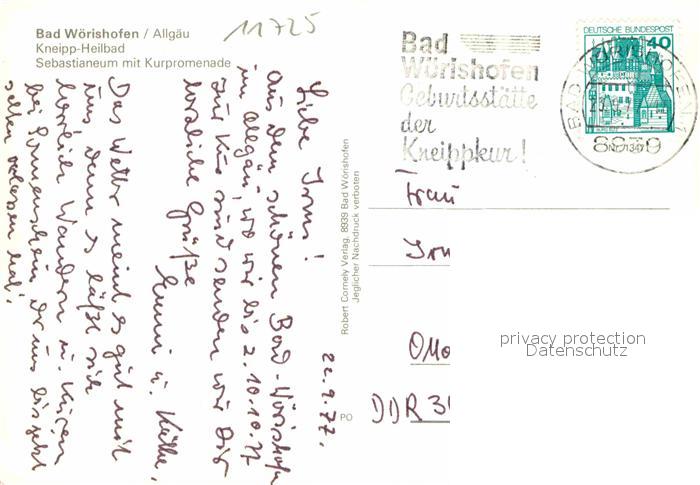 11725
Bad Wörishofen / Allgäu
Kneipp-Heilbad
Sebastianeum mit Kurpromenade
22.9.77.
Liebe Irms!
Aus dem schönen Bad-Wörishofen
im Allgäu, wo wir bis 2.10.77
zur Kur sind senden wir Dir
herzliche Grüße
u. Käthe.
Das Wetter meint es gut mit
uns denn es läßt sich
herrlich Wandern u. Kuren
bei Sonnenschein der uns bis jetzt
selten verlassen hat!
Robert Cornely Verlag, 8939 Bad Wörishofen
Jeglicher Nachdruck verboten
PO
Bad
Wörishofen
Geburtsstätte
der
Kneippkur!
DEUTSCHE BUNDESPOST
40
BAD WÖRISHOFEN 1
8939
Frau
Irm
Otto
DDR 3
privacy protection
Datenschutz